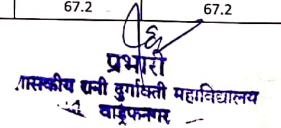 67.2 67.2
प्रभारी
शासकीय रानी दुर्गावती महाविद्यालय
वाड्रफनगर